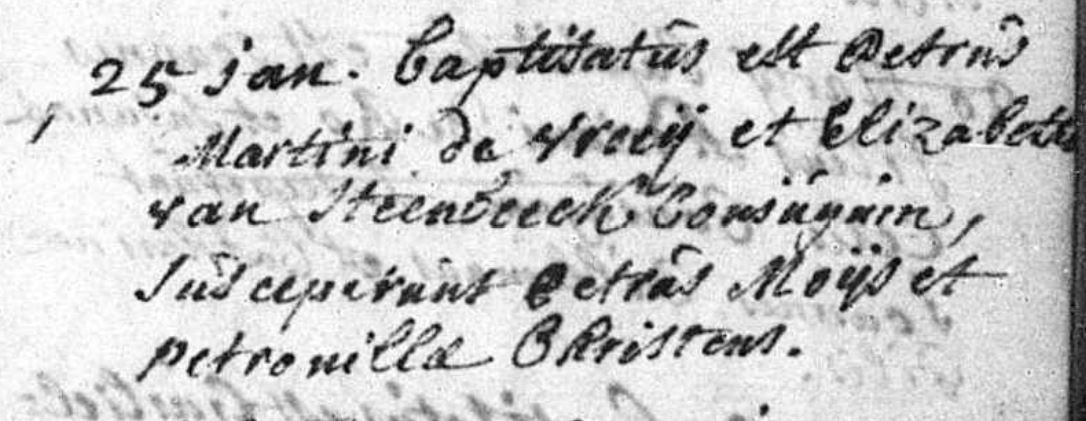 25 Jan. baptisatus est Petrus
Martini de Vreeij et Elizabeth
van Steenbeeck Conjugum,
susceperunt Petrus Moijs et
petronilla Christens.